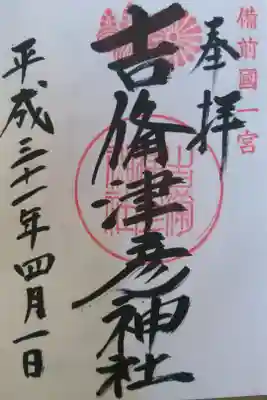 備前國一宮
奉拝
吉備津彦神社
平成三十一年四月一日